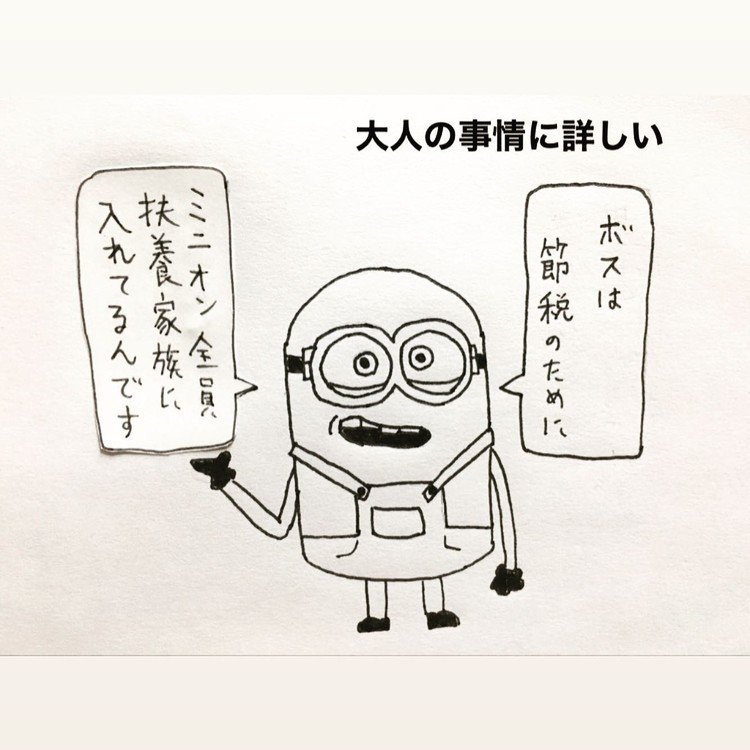 大人の事情に詳しい
ボスは
節税のために
ミニオン全員
扶養家族に
入れてるんです